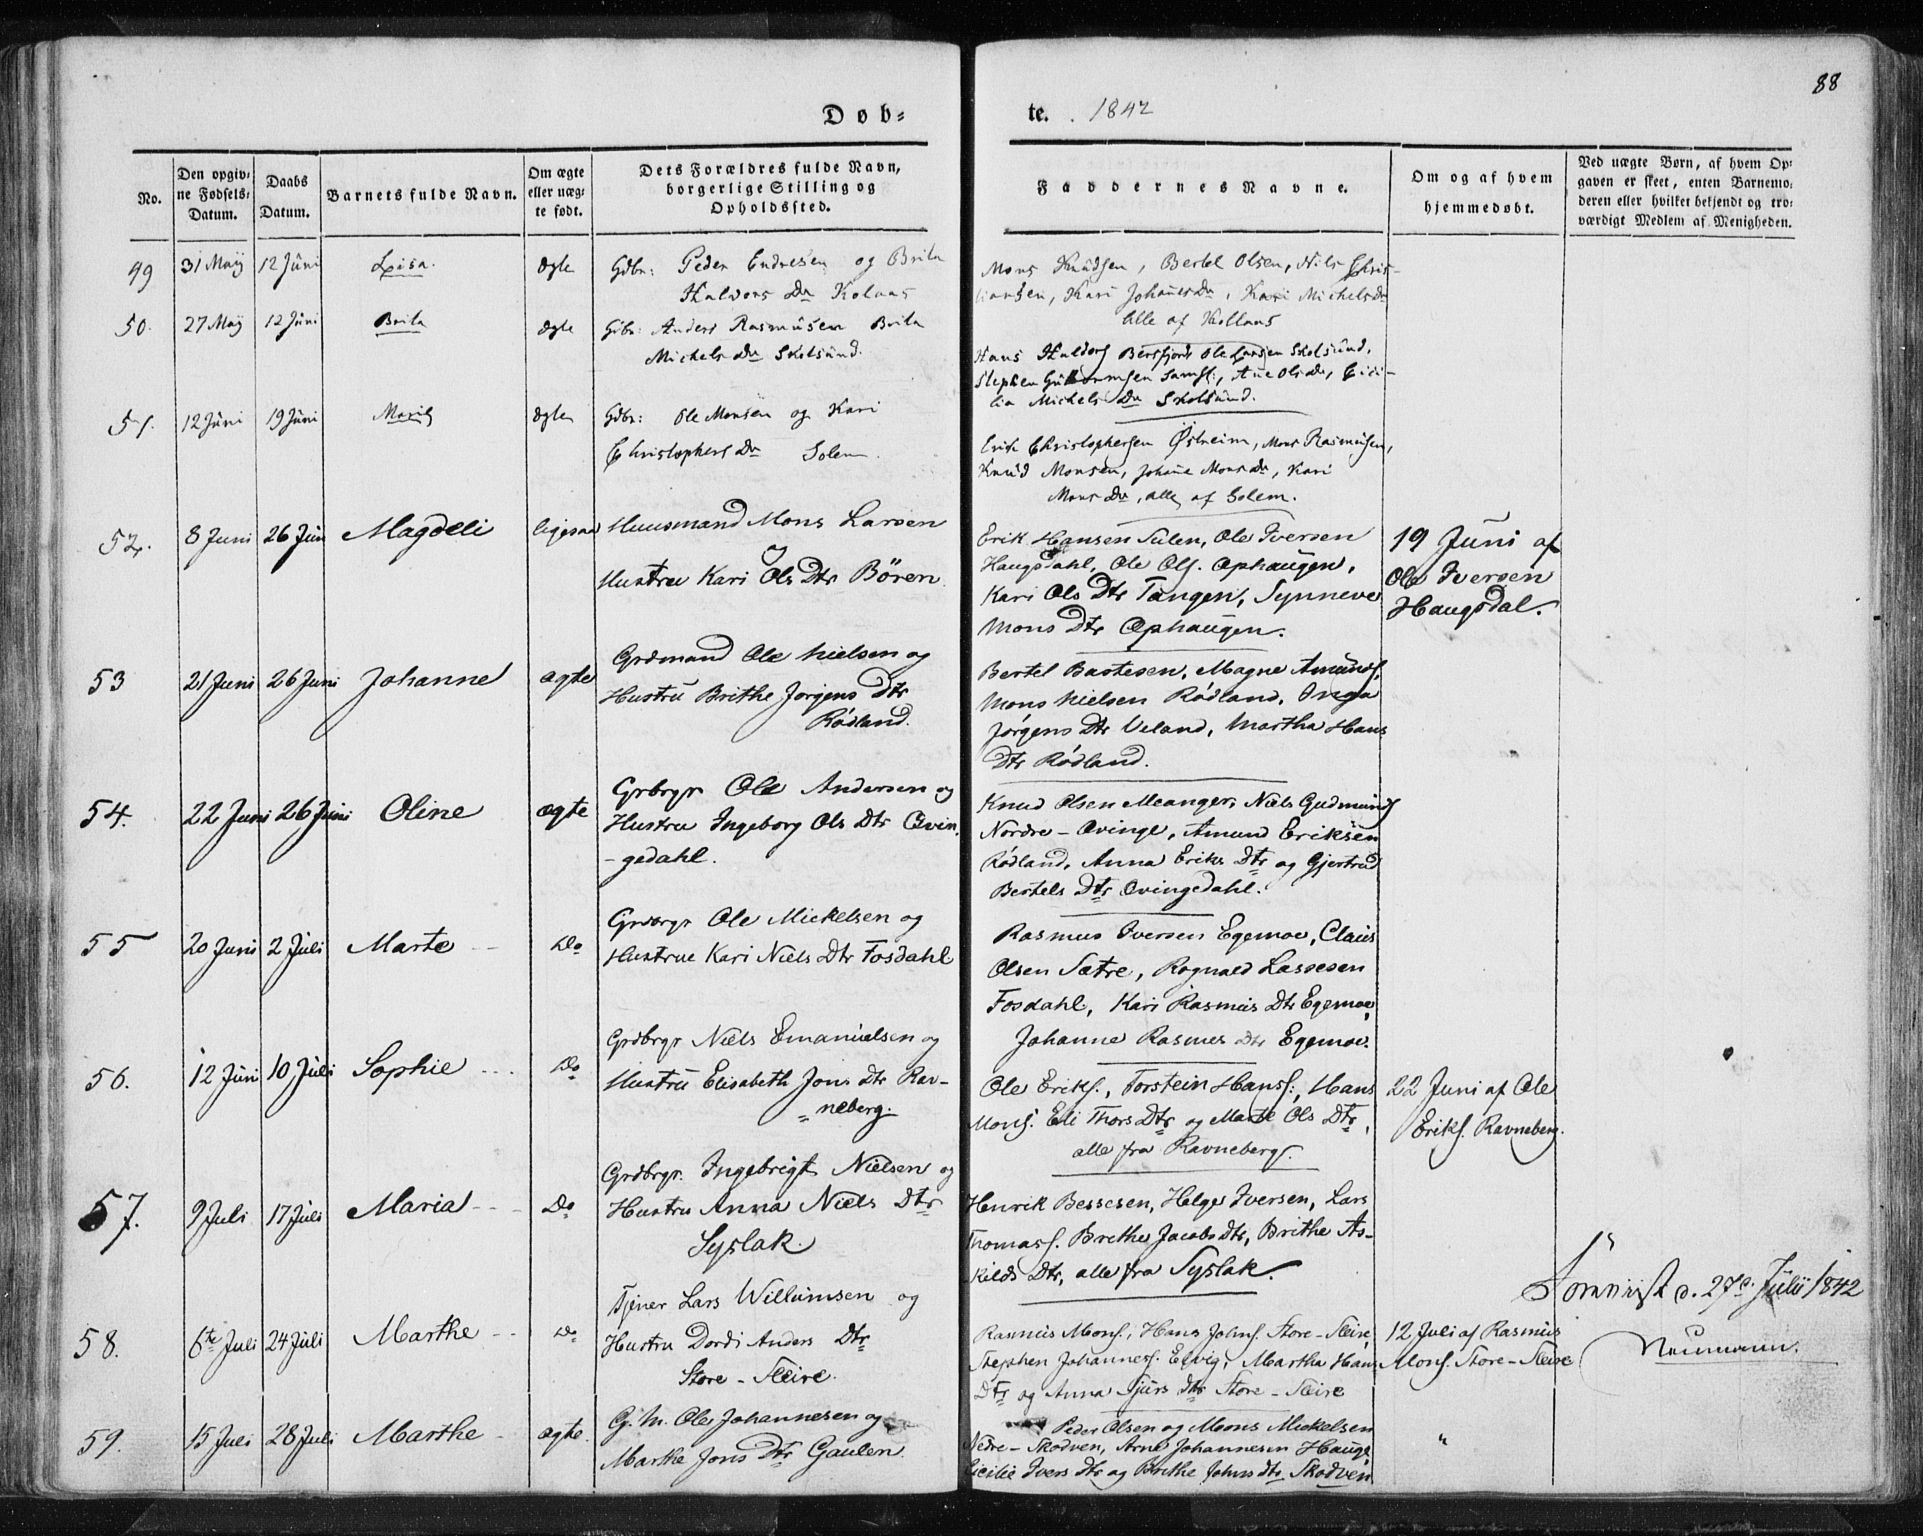 88
Døb=
te. 1842
No.
Den opgiv=
ne Fødsels=
Datum.
Daabs
Datum.
Barnets fulde Navn.
Om ægte
eller uæg=
te født.
Dets Forældres fulde Navn,
borgerlige Stilling og
Opholdssted.
Faddernes Navne.
Om og af hvem
hjemmedøbt.
Ved uægte Børn, af hvem Op=
gaven er skeet, enten Barnemo=
deren eller hvilket bekjendt og tro=
værdigt Medlem af Menigheden.
49 31 Maij 12 Juni Lisa. ægte Gdbr: Peder Endresen og Brita
Halvors Dr Kolaas
Mons Knudsen, Bertel Olsen, Nils Chris-
tiansen, Kari Johanes Dr, Kari Michels Dr
Alle af Kollaas
50. 27 Maij 12 Juni Brita ægte Gdbr: Anders Rasmusen Brita
Michels Dr Skolsund.
Hans Haldors Ole Larsen Skolsund,
Stephen Guttormsen Ane Ols Dr, Cici-
lia Michels Dr Skolsund.
51. 12 Juni 19 Juni ægte Gdbr: Ole Monsen og Kari
Christophers Dr Solem.
Erik Christophersen Østreim, Mons Rasmusen,
Knud Monsen, Johane Mons Dr, Kari
Mons Dr, alle af Solem.
52. 8 Juni 26 Juni Magdeli ligesaa Huusmand Mons Larsen
Hustru Kari Ols Dtr Bören
Erik Hansen Sulen, Ole Iversen
Haugsdahl, Ole Ols. Ophaugen,
Kari Ols Dtr Tangen, Synneve
Mons Dtr Ophaugen.
19 Juni af
Ole Iversen
Haugsdal.
53 21 Juni 26 Juni Johanne ægte Grdmand Ole Nielsen og
Hustru Brithe Jørgens Dtr
Rødland.
Bertel Bastesen, Magne Amunds.
Mons Nielsen Rødland, Inga
Jørgens Dtr Veland, Martha Hans
Dtr Rødland.
54. 22 Juni 26 Juni Oline ægte Grbrgr Ole Andersen og
Hustru Ingeborg Ols Dtr Qvin
-gedahl.
Knud Olsen Meanger, Niels Gudmunds
Nordre - Qvinge, Amund Eriksen
Rødland, Anna Eriks Dtr og Gjertrud
Bertels Dtr Qvingedahl.
55 20 Juni 2 Juli Marte -- Do Grdbrgr Ole Mickelsen og
Hustrue Kari Niels Dtr Fosdahl
Rasmus Iversen Egemoe, Claus
Olsen Sætre, Rognald Lassesen
Fosdahl, Kari Rasmus Dtr Egemoe,
Johanne Rasmus Dtr Egemoe.
56. 12 Juni 10 Juli Sophie --- Do Grdbrgr Niels Emanuelsen og
Hustru Elisabeth Jons Dtr Rav-
=neberg.
Ole Eriks., Torstein Hans., Hans
Mons. Eli Thors Dtr og Marte Ols Dtr,
alle fra Ravneberg.
22 Juni af Ole
Eriks. Ravneberg.
57. 9 Juli 17 Juli Maria --- Do Grdbrgr. Ingebrigt Nielsen og
Hustru Anna Niels Dtr
Syslak.
Henrik Bessesen, Helge Iversen, Lars
Thomass. Brethe Jacobs Dtr, Brithe As-
kilds Dtr, alle fra Syslak.
d. 27d. Julii 1842
Neumann.
58. 6te Juli 24 Juli Marthe -- Do Tjener Lars Willumsen og
Hustru Dordi Anders Dtr
Store - Steire.
Rasmus Mons., Hans Johns. Store - Steire,
Stephen Johannes. Elvig, Martha Hans
Dtr og Anna Sjurs Dtr Store - Steire
12 Juli af Rasmus
Mons. Store - Steire
59. 15 Juli 28 Juli Marthe - ægte. G. M. Ole Johannesen og
Marthe Jons Dtr Gaulen.
Peder Olsen og Mons Mickelsen
Nedre - Skodven, Arne Johannesen Hauge,
Cicilie Ivers Dtr og Brithe Johns Dtr Skodven
"